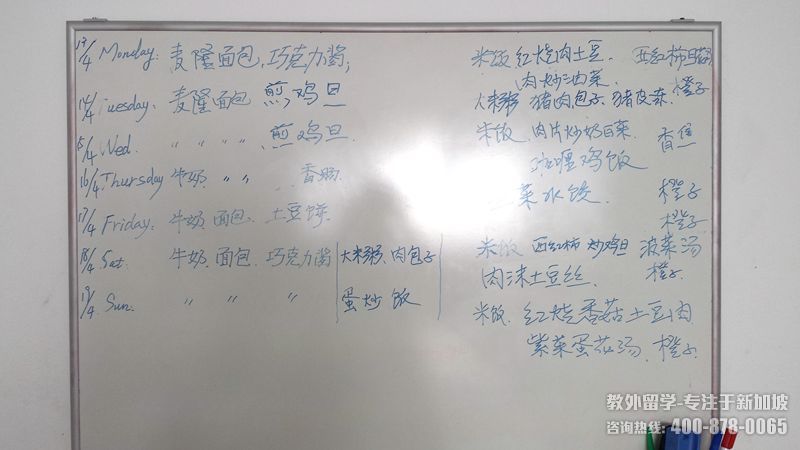 13/4 Monday: 麦隆面包, 巧克力酱; 米饭 红烧肉土豆. 西红柿
肉炒油菜. 橙子
14/4 Tuesday: 麦隆面包 煎鸡旦 大米粥 猪肉包子. 猪皮冻.
15/4 Wed. 〃 〃 〃 〃 煎鸡旦 米饭 肉片炒奶白菜 香蕉
16/4 Thursday 牛奶. 〃 〃 香肠. 咖喱鸡饭
菜水饺 橙子
17/4 Friday: 牛奶. 面包. 土豆饼. 橙子
18/4 Sat: 牛奶. 面包. 巧克力酱 大米粥. 肉包子 米饭 西红柿炒鸡旦 菠菜汤
肉沫土豆丝 橙子
19/4 Sun. 〃 〃 〃 蛋炒饭 米饭. 红烧香菇土豆肉
紫菜蛋花汤. 橙子.
教外留学-专注于新加坡
咨询热线: 400-878-0065